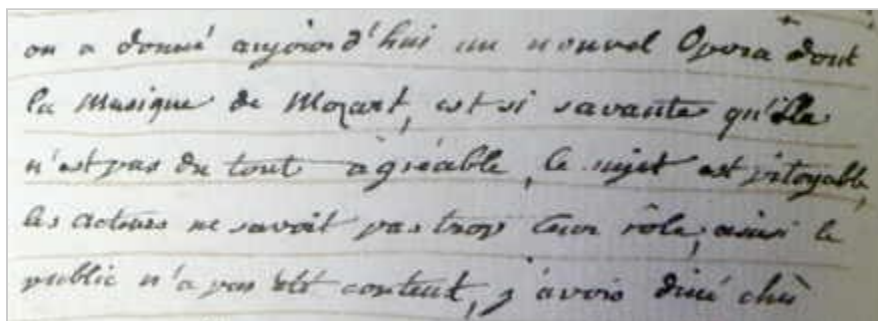 on a donné aujourd'hui un nouvel Opera dont
la Musique de Mozart, est si savante qu'elle
n'est pas du tout agréable, le sujet est pitoyable,
les acteurs ne savoit pas trop leur rôle, ainsi le
public n'a pas été content, j'avois diné chès